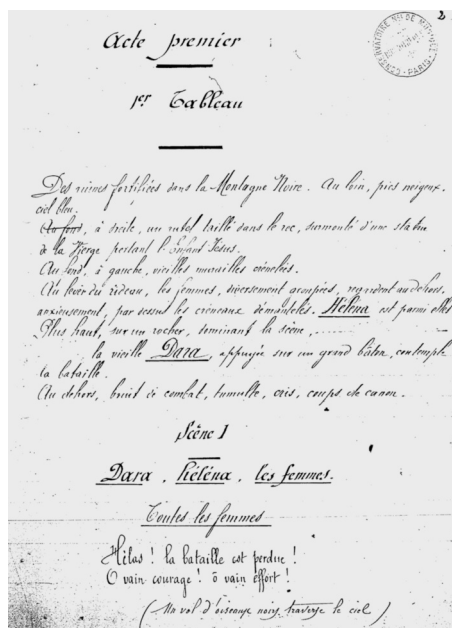 2
CONSERVATOIRE Nal DE MUSIQUE
PARIS
Acte premier
1er Tableau
Des ruines fortifiées dans la Montagne Noire. Au loin, pics neigeux,
ciel bleu.
Au fond, à droite, un autel taillé dans le roc, surmonté d'une statue
de la Vierge portant l'Enfant Jésus.
Au fond, à gauche, vieilles murailles crénelées.
Au lever du rideau, les femmes, diversement groupées, regardent au dehors,
anxieusement, par dessus les créneaux démantelés. Héléna est parmi elles
Plus haut, sur un rocher, dominant la scène,
la vieille Dara, appuyée sur un grand bâton, contemple
la bataille.
Au dehors, bruit de combat, tumulte, cris, coups de canon.
Scène I
Dara, Héléna, les femmes.
Toutes les femmes
Hélas ! la bataille est perdue !
O vain courage ! ô vain effort !
(Un vol d'oiseaux noirs traverse le ciel)